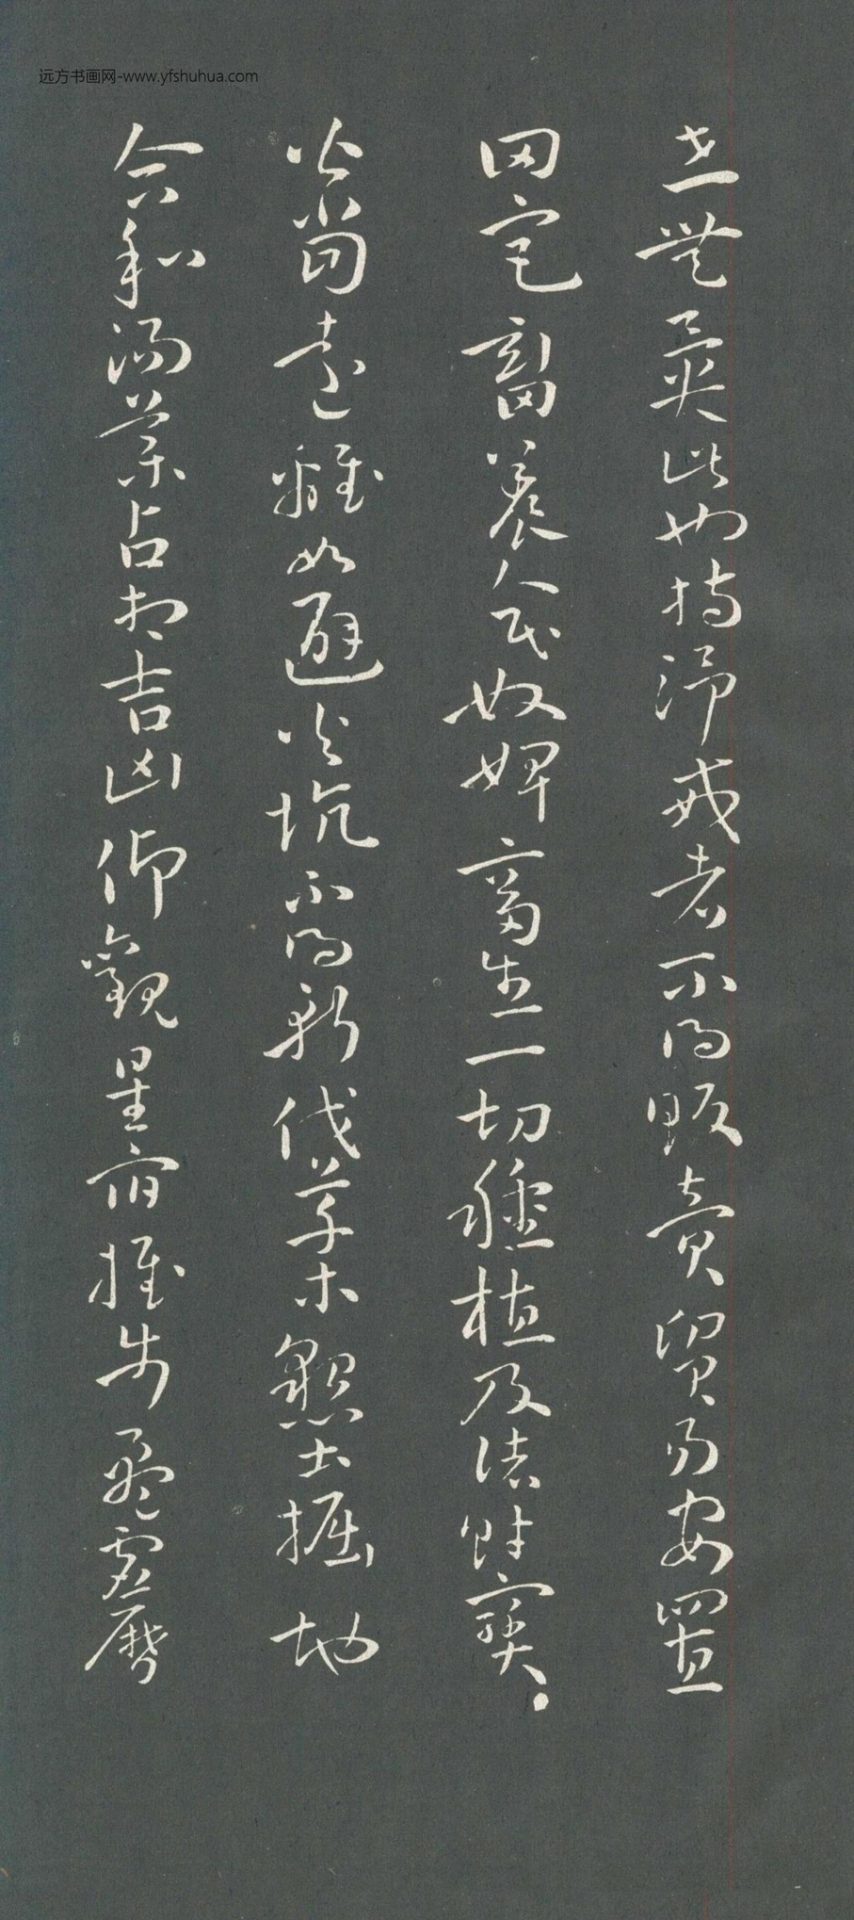 远方书画网-www.yfshuhua.com
在世無異此也持淨戒者不得販賣貿易安置
田宅畜養人民奴婢畜生一切種植及諸財寶
皆當遠離如避火坑不得斬伐草木墾土掘地
合和湯藥占相吉凶仰觀星宿推步盈虛曆